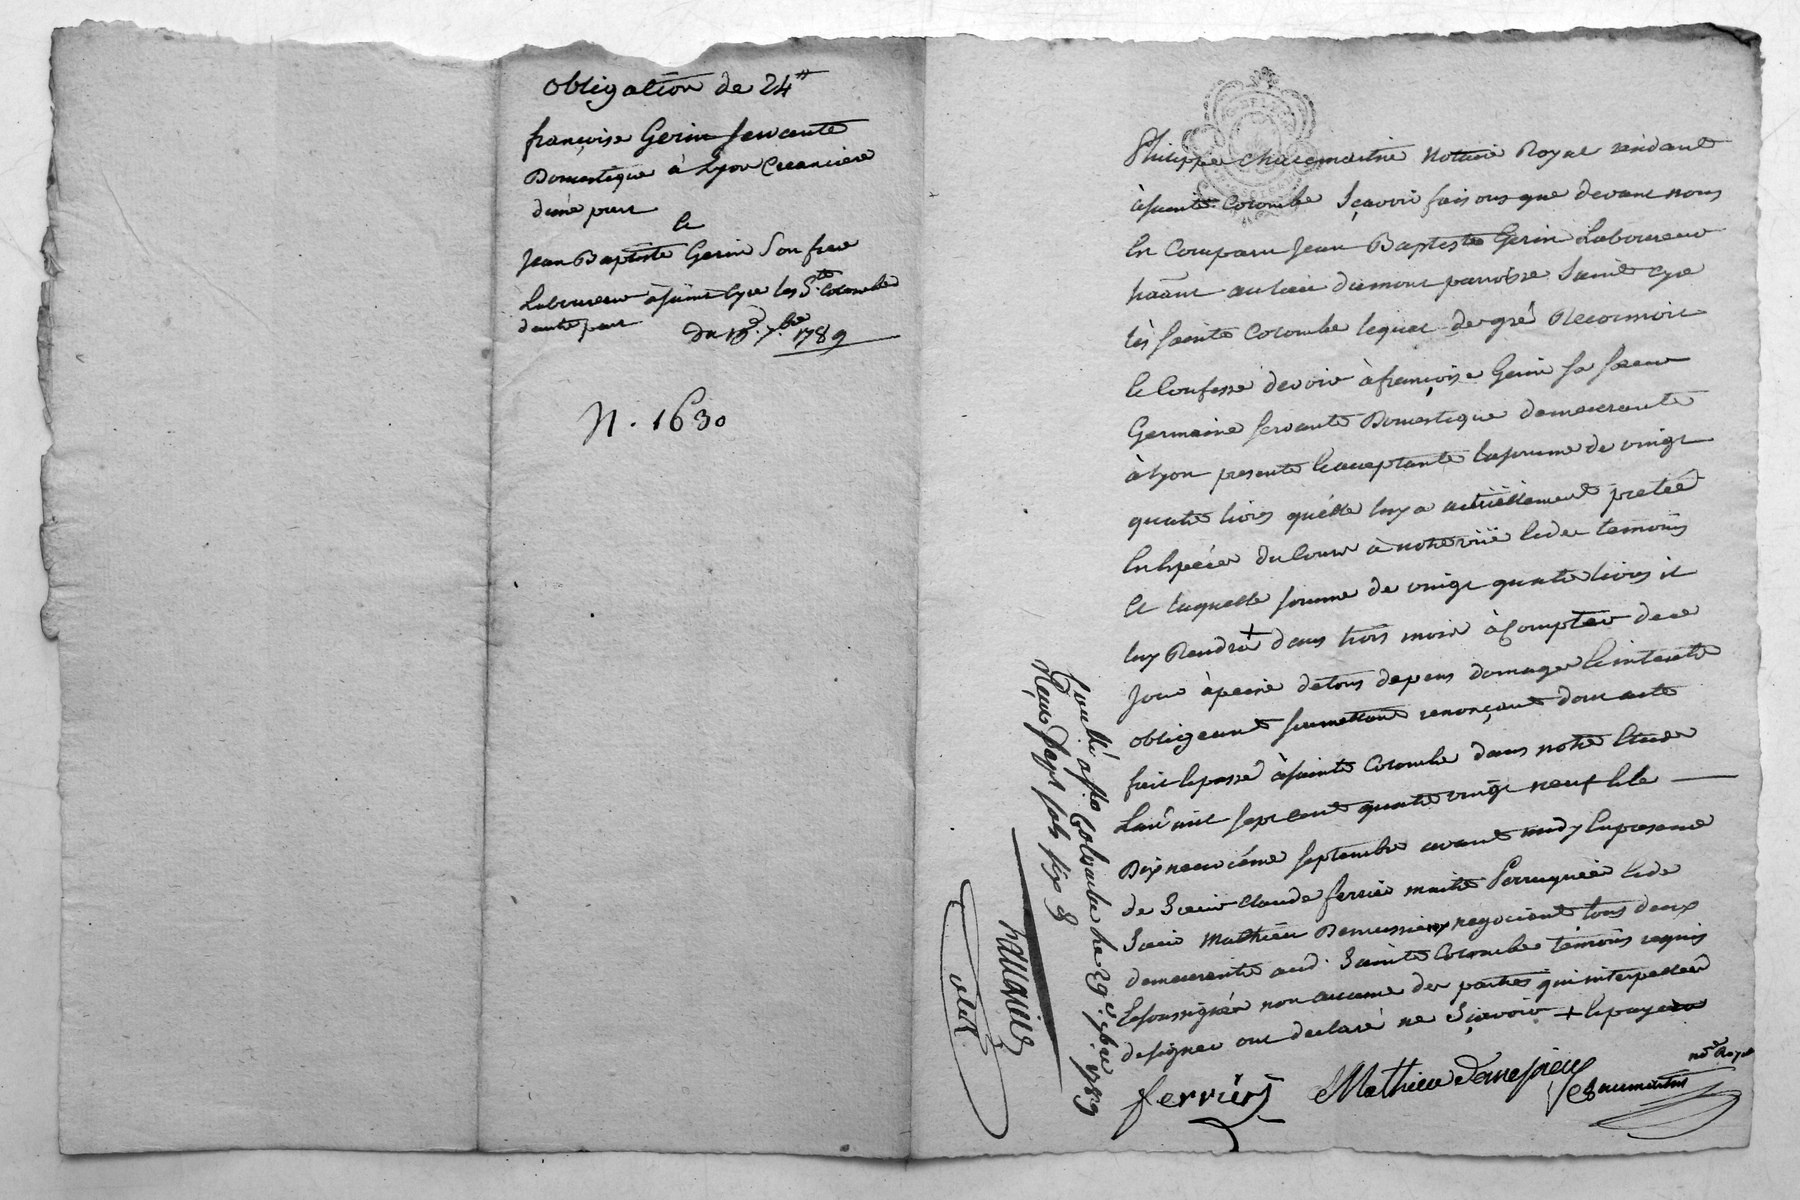 obligation de 24ᵗᵗ
françoise Gerin servante
Domestique à Lyon Creanciere
d'une part
et
Jean Baptiste Gerin Son frere
Laboureur à saint Cyre les Sᵗᵉ Colombe
d'autre part
Du 19ᵉ 7bre 1789
N. 1630
Philippe Chacemartin Notaire Royal résidant
à sainte Colombe sçavoir faisons que devant nous
En Comparu Jean Baptiste Gerin Laboureur
hãant au lieu dumont parroisse Saint Cyre
lès Sainte Colombe lequel de gré Reconnoit
et Confesse devoir à françoise Gerin sa sœur
Germaine servante Domestique demeurante
à Lyon presente et acceptante la somme de vingt
quatre livres qu'elle luy a actuëllement pretée
En Espéce du Cours à notre vüe et de temoins
et laquelle somme de vingt quatre livres il
luy Rendra + dans trois mois à Compter de ce
jour à peine de tous depens domages et interets
obligeant soumettant renonçant dont acte
fait et passé à sainte Colombe dans notre Etude
L'an mil sept cent quatre vingt neuf et le
Dix neuviéme septembre avant midy En presence
de Sieur Claude ferrier maitre Perruquier et de
Sieur Mathieu Demussieux negociant tous deux
demeurants aud. Sainte Colombe témoins requis
et soussignés non aucune des parties qui interpellées
de signer ont declaré ne Sçavoir + et payera
ferrier
Mathieu
Nore Royal
Coullé a Ste Colombe le 29 7bre 1789
Reçu sept sols six d